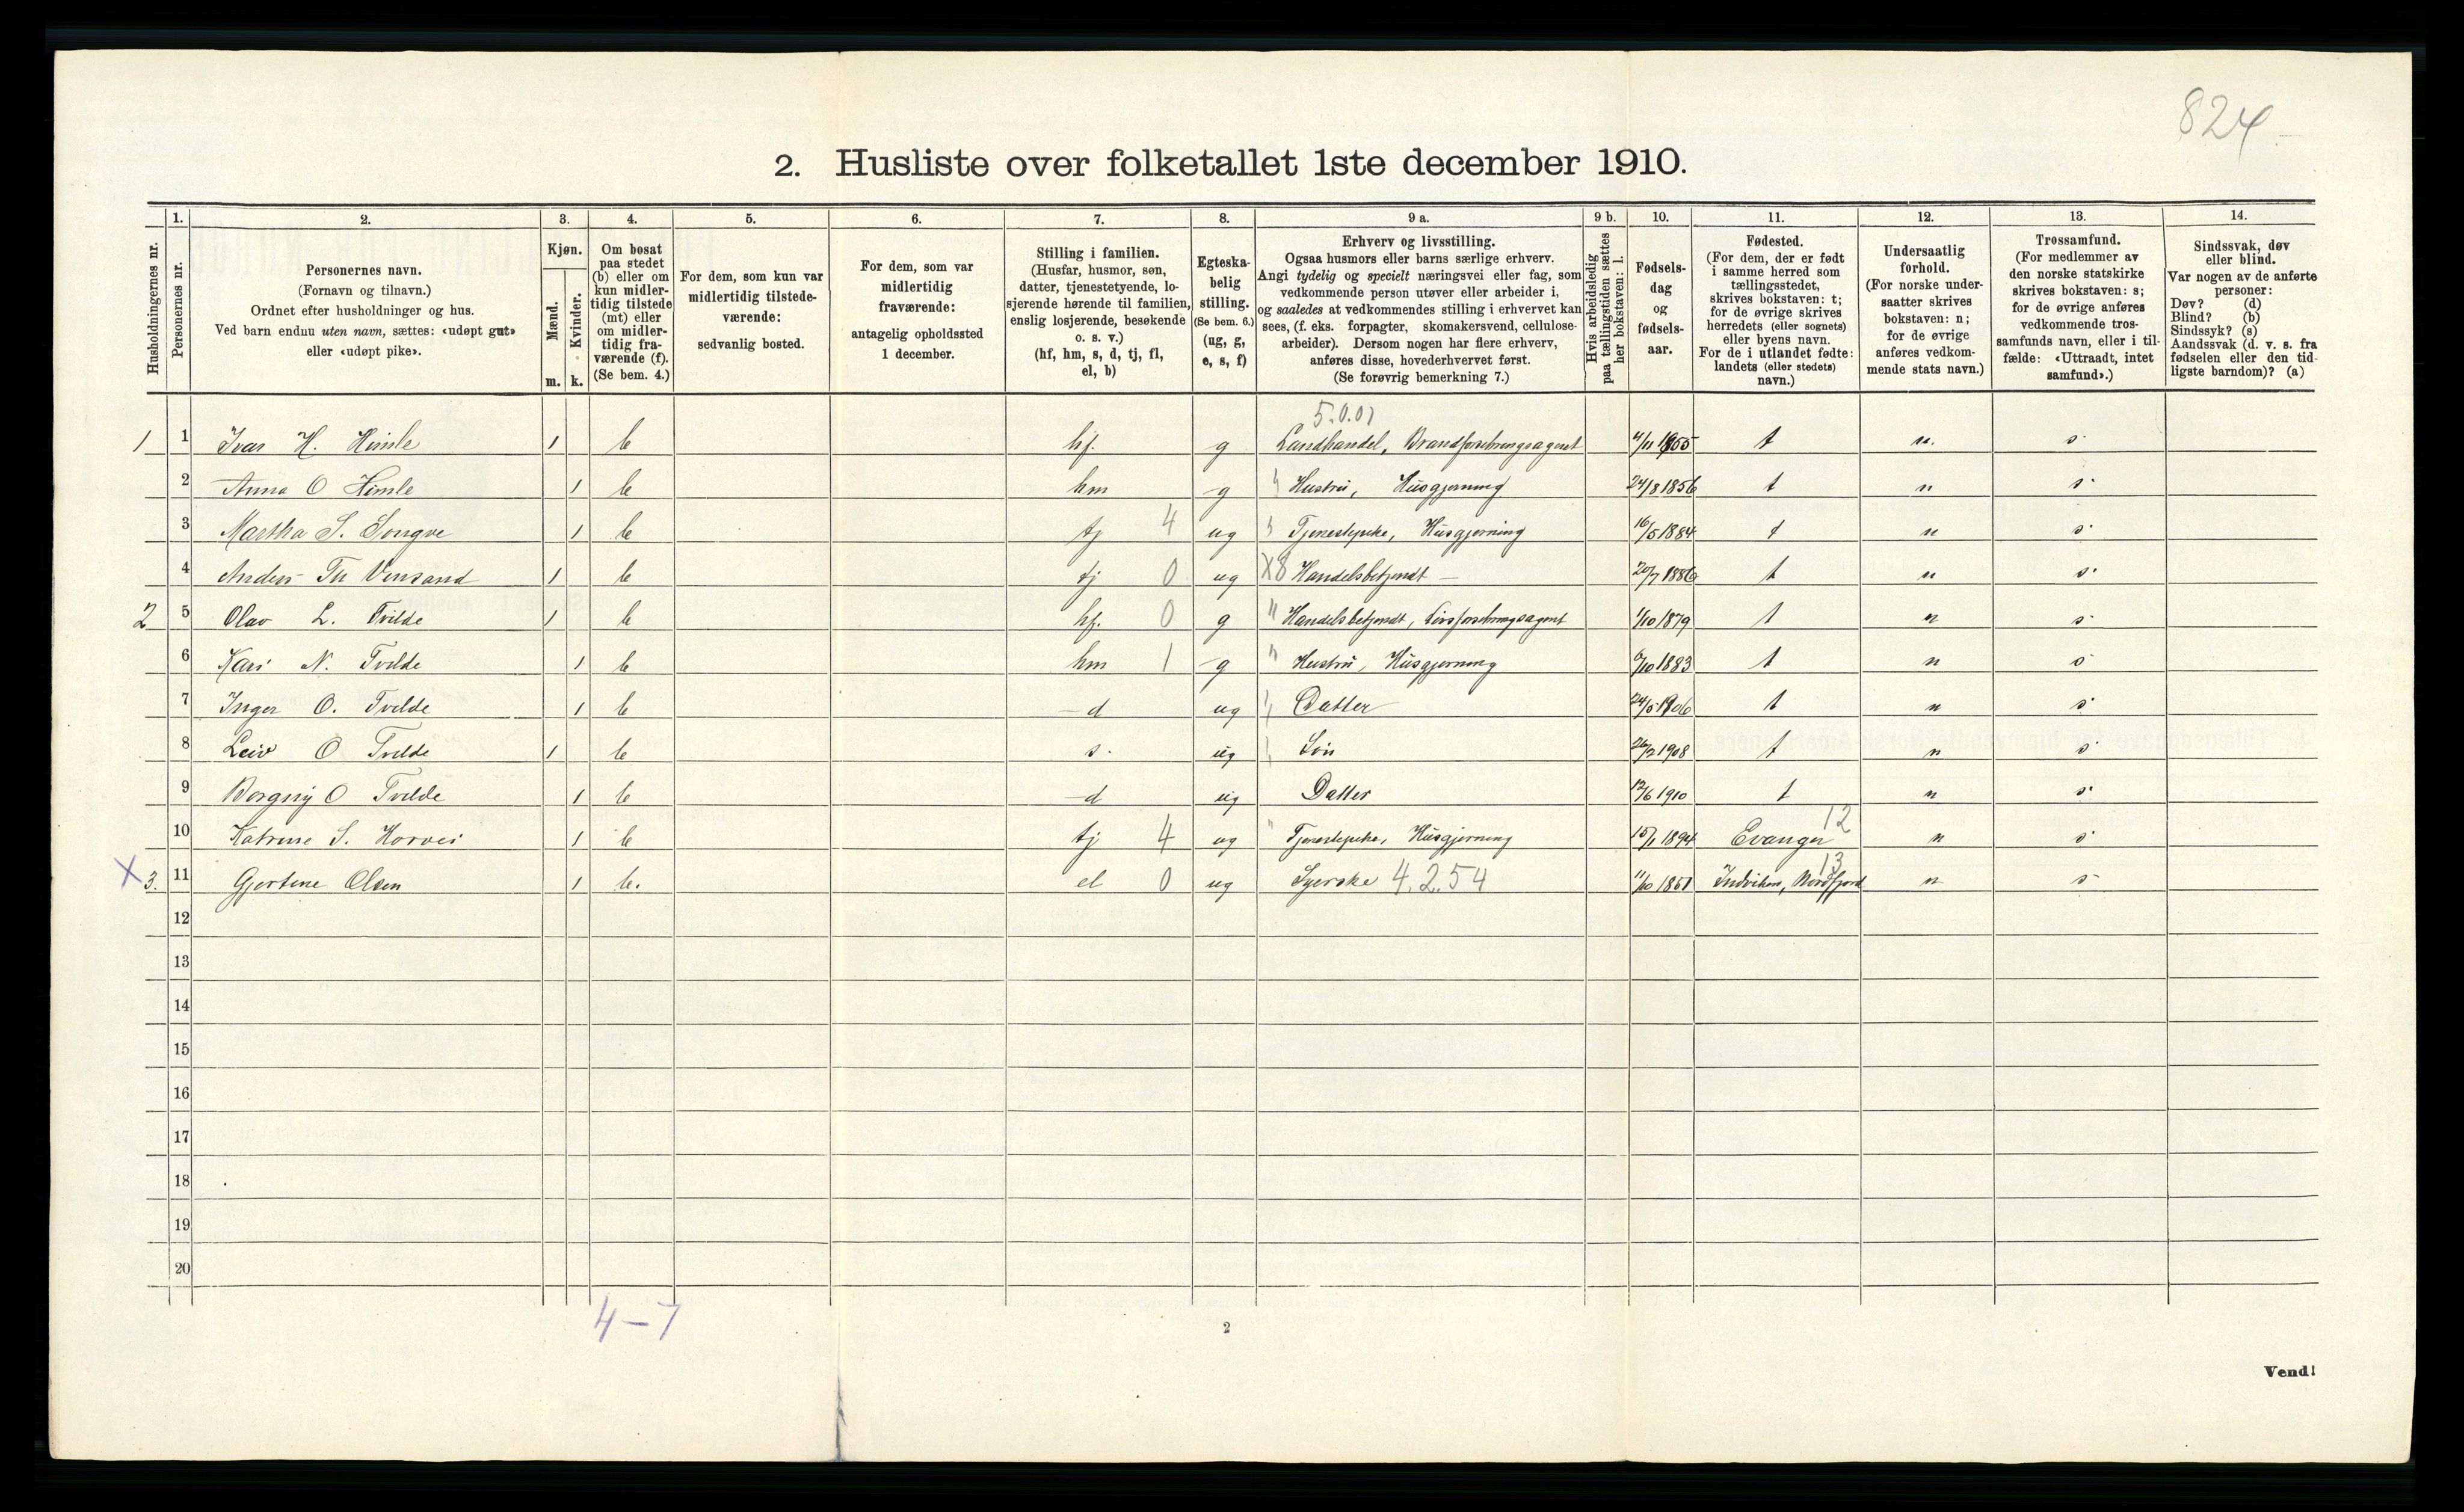 824
2. Husliste over folketallet 1ste december 1910.
Husholdningernes nr.
1.
Personernes nr.
2.
Personernes navn.
(Fornavn og tilnavn.)
Ordnet efter husholdninger og hus.
Ved barn endnu uten navn, sættes: «udøpt gut»
eller «udøpt pike».
3.
Kjøn.
Mænd.
Kvinder.
m. k.
4.
Om bosat
paa stedet
(b) eller om
kun midler-
tidig tilstede
(mt) eller
om midler-
tidig fra-
værende (f).
(Se bem. 4.)
5.
For dem, som kun var
midlertidig tilstede-
værende:
sedvanlig bosted.
6.
For dem, som var
midlertidig
fraværende:
antagelig opholdssted
1 december.
7.
Stilling i familien.
(Husfar, husmor, søn,
datter, tjenestetyende, lo-
sjerende hørende til familien,
enslig losjerende, besøkende
o. s. v.)
(hf, hm, s, d, tj, fl,
el, b)
8.
Egteska-
belig
stilling.
(Se bem. 6.)
(ug, g,
e, s, f)
9 a.
Erhverv og livsstilling.
Ogsaa husmors eller barns særlige erhverv.
Angi tydelig og specielt næringsvei eller fag, som
vedkommende person utøver eller arbeider i,
og saaledes at vedkommendes stilling i erhvervet kan
sees, (f. eks. forpagter, skomakersvend, cellulose-
arbeider). Dersom nogen har flere erhverv,
anføres disse, hovederhvervet først.
(Se forøvrig bemerkning 7.)
9 b.
Hvis arbeidsledig
paa tællingstiden sættes
her bokstaven: l.
10.
Fødsels-
dag
og
fødsels-
aar.
11.
Fødested.
(For dem, der er født
i samme herred som
tællingsstedet,
skrives bokstaven: t;
for de øvrige skrives
herredets (eller sognets)
eller byens navn.
For de i utlandet fødte:
landets (eller stedets)
navn.)
12.
Undersaatlig
forhold.
(For norske under-
saatter skrives
bokstaven: n;
for de øvrige
anføres vedkom-
mende stats navn.)
13.
Trossamfund.
(For medlemmer av
den norske statskirke
skrives bokstaven: s;
for de øvrige anføres
vedkommende tros-
samfunds navn, eller i til-
fælde: «Uttraadt, intet
samfund».)
14.
Sindssvak, døv
eller blind.
Var nogen av de anførte
personer:
Døv? (d)
Blind? (b)
Sindssyk? (s)
Aandssvak (d. v. s. fra
fødselen eller den tid-
ligste barndom)? (a)
5.0.01
1 1 Ivar H. Himle 1 b hf. g Landhandel, Brandforsikringsagent 4/11 1855 t n. s
2 Anna O Himle 1 b hm g Hustru, Husgjerning 24/8 1856 t n s
3 Martha S. Songve 1 b tj 4 ug Tjenestepike, Husgjerning 16/5 1884 t n s
4 Anders Th Vinsand 1 b tj 0 ug X8 Handelsbetjendt 20/7 1886 t n s
2 5 Olav L. Tvilde 1 b hf. 0 g " Handelsbetjendt, Livsforsikringsagent 1/10 1879 t n s
6 Kari N. Tvilde 1 b hm 1 g " Hustru, Husgjerning 6/10 1883 t n s
7 Inger O. Tvilde 1 b d ug Datter 24/5 1906 t n s
8 Leiv O Tvilde 1 b s. ug Søn 26/2 1908 t n s
9 Borgny O Tvilde 1 b d ug Datter 12/6 1910 t n s
10 Katrine S. Horvei 1 b tj 4 ug " Tjenestepike, Husgjerning 15/1 1894 Evanger 12 n s
X 3. 11 Gjertine Olsen 1 b. el 0 ug Syerske 4.2.54 11/10 1851 Indviken, Nordfjord 13 n s
12
13
14
15
16
17
18
19
20
4-7
2
Vend!